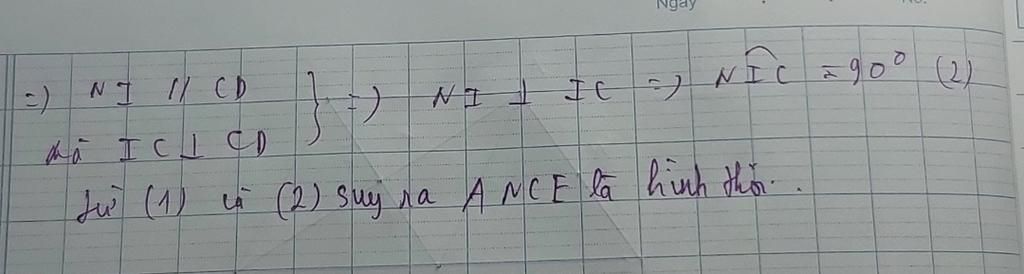 Ngày No.
=) NI // CD } =) NI ⊥ IC =) NIC = 90° (2)
mà IC ⊥ CD
từ (1) và (2) suy ra ANCE là hình thoi.